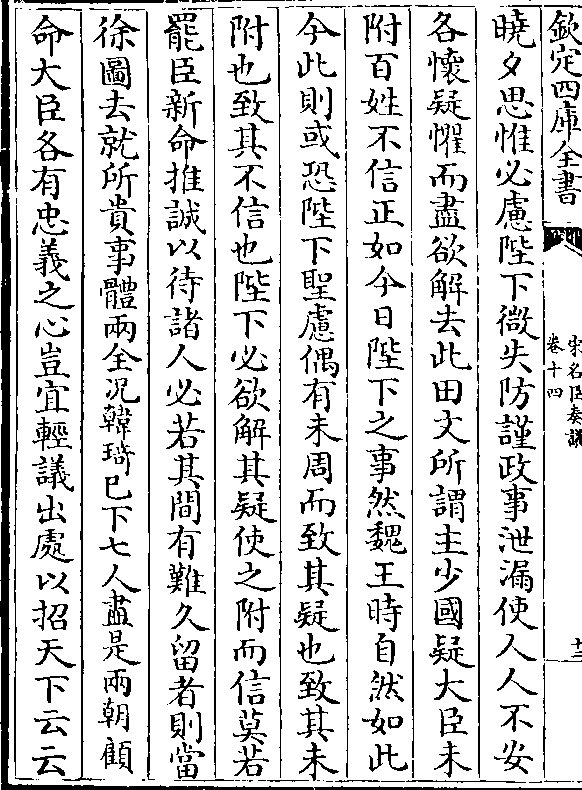 欽定四庫全書
宋名臣奏議
卷十四
十三
曉夕思惟必慮陛下微失防謹政事泄漏使人人不安
各懷疑懼而盡欲解去此田文所謂主少國疑大臣未
附百姓不信正如今日陛下之事然魏王時自然如此
今此則或恐陛下聖慮偶有未周而致其疑也致其未
附也致其不信也陛下必欲解其疑使之附而信莫若
罷臣新命推誠以待諸人必若其間有難久留者則當
徐圖去就所貴事體兩全况韓琦已下七人盡是兩朝顧
命大臣各有忠義之心豈宜輕議出處以招天下云云